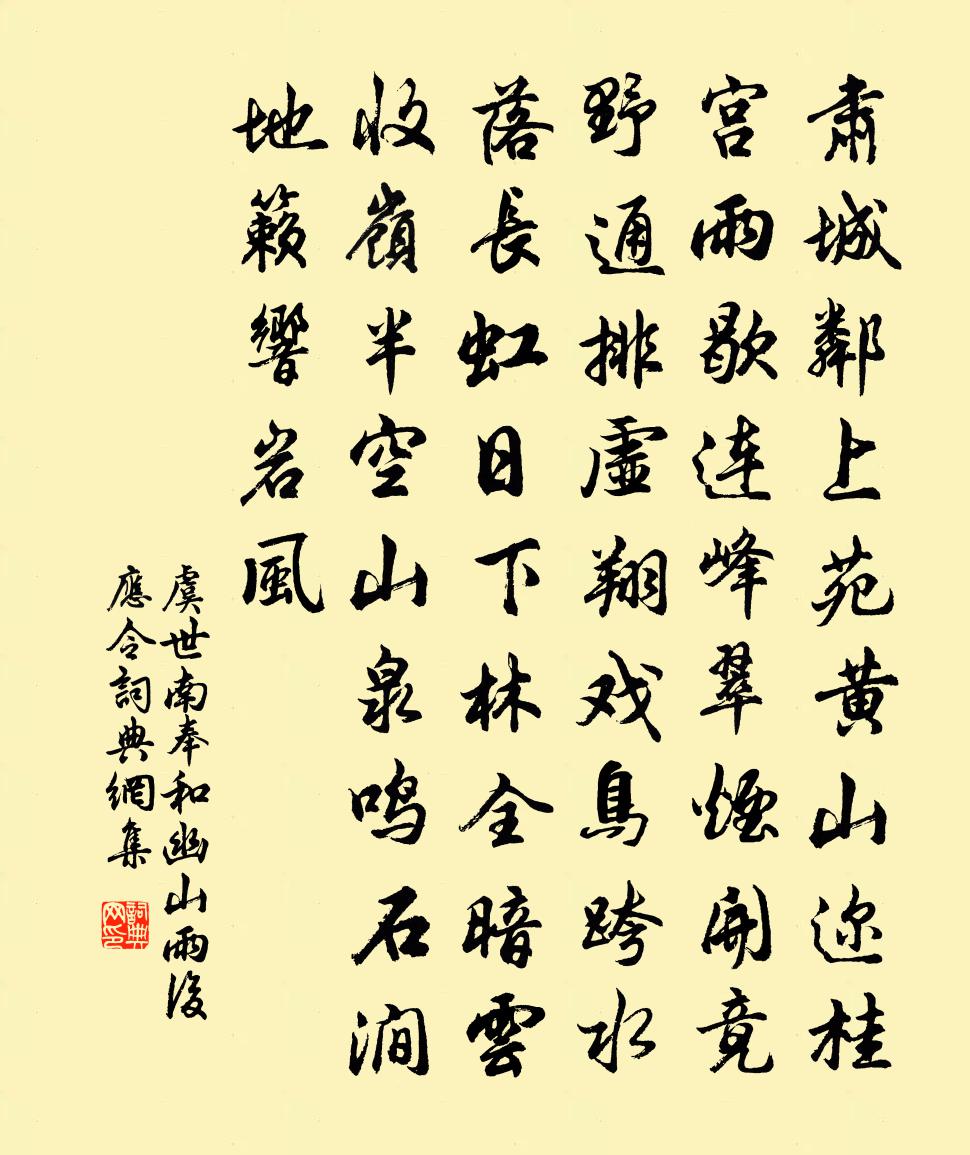 肅城鄰上苑黄山迩桂
宫雨歇連峰翠煙開竟
野通排虛翔戏鳥跨水
落長虹日下林全暗雲
收嶺半空山泉鸣石澗
地籟響岩風
虞世南奉和幽山雨後
應令詞典網集
詞典网印